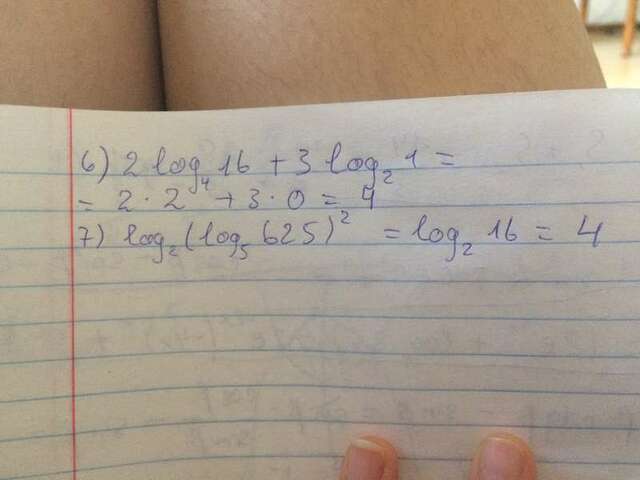 6) 2 log₄ 16 + 3 log₂ 1 =
= 2 · 2 + 3 · 0 = 4
7) log₂ (log₅ 625)² = log₂ 16 = 4